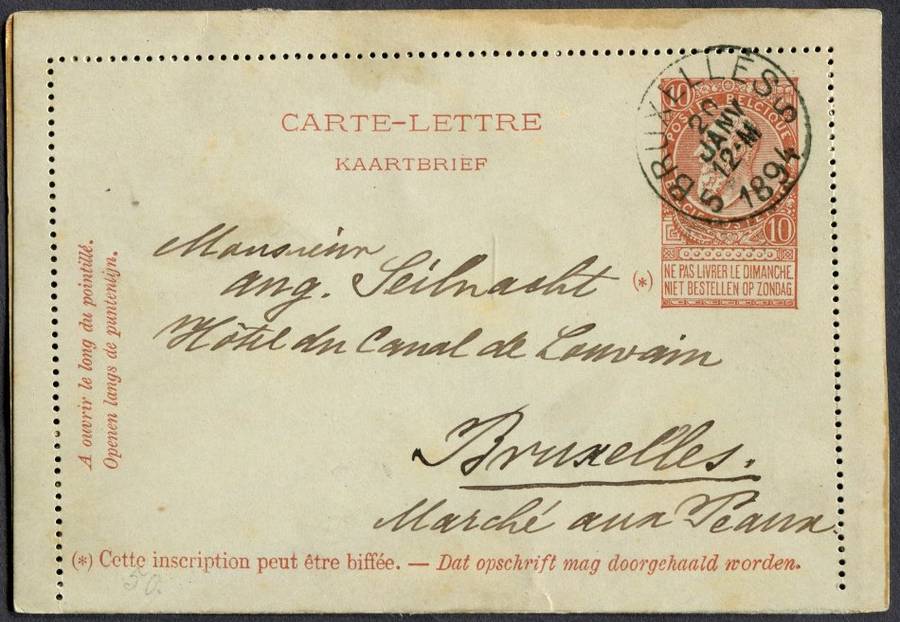 CARTE-LETTRE
KAARTBRIEF
10
POSTES BELGIQUE
10
NE PAS LIVRER LE DIMANCHE.
NIET BESTELLEN OP ZONDAG
BRUXELLES 5
JANV
12-M
1894
5
(*)
Monsieur
aug. Seilnacht
Hôtel du Canal de Louvain
Bruxelles.
Marché aux Peaux
A ouvrir le long du pointillé.
Openen langs de puntenlijn.
(*) Cette inscription peut être biffée. — Dat opschrift mag doorgehaald worden.
50.